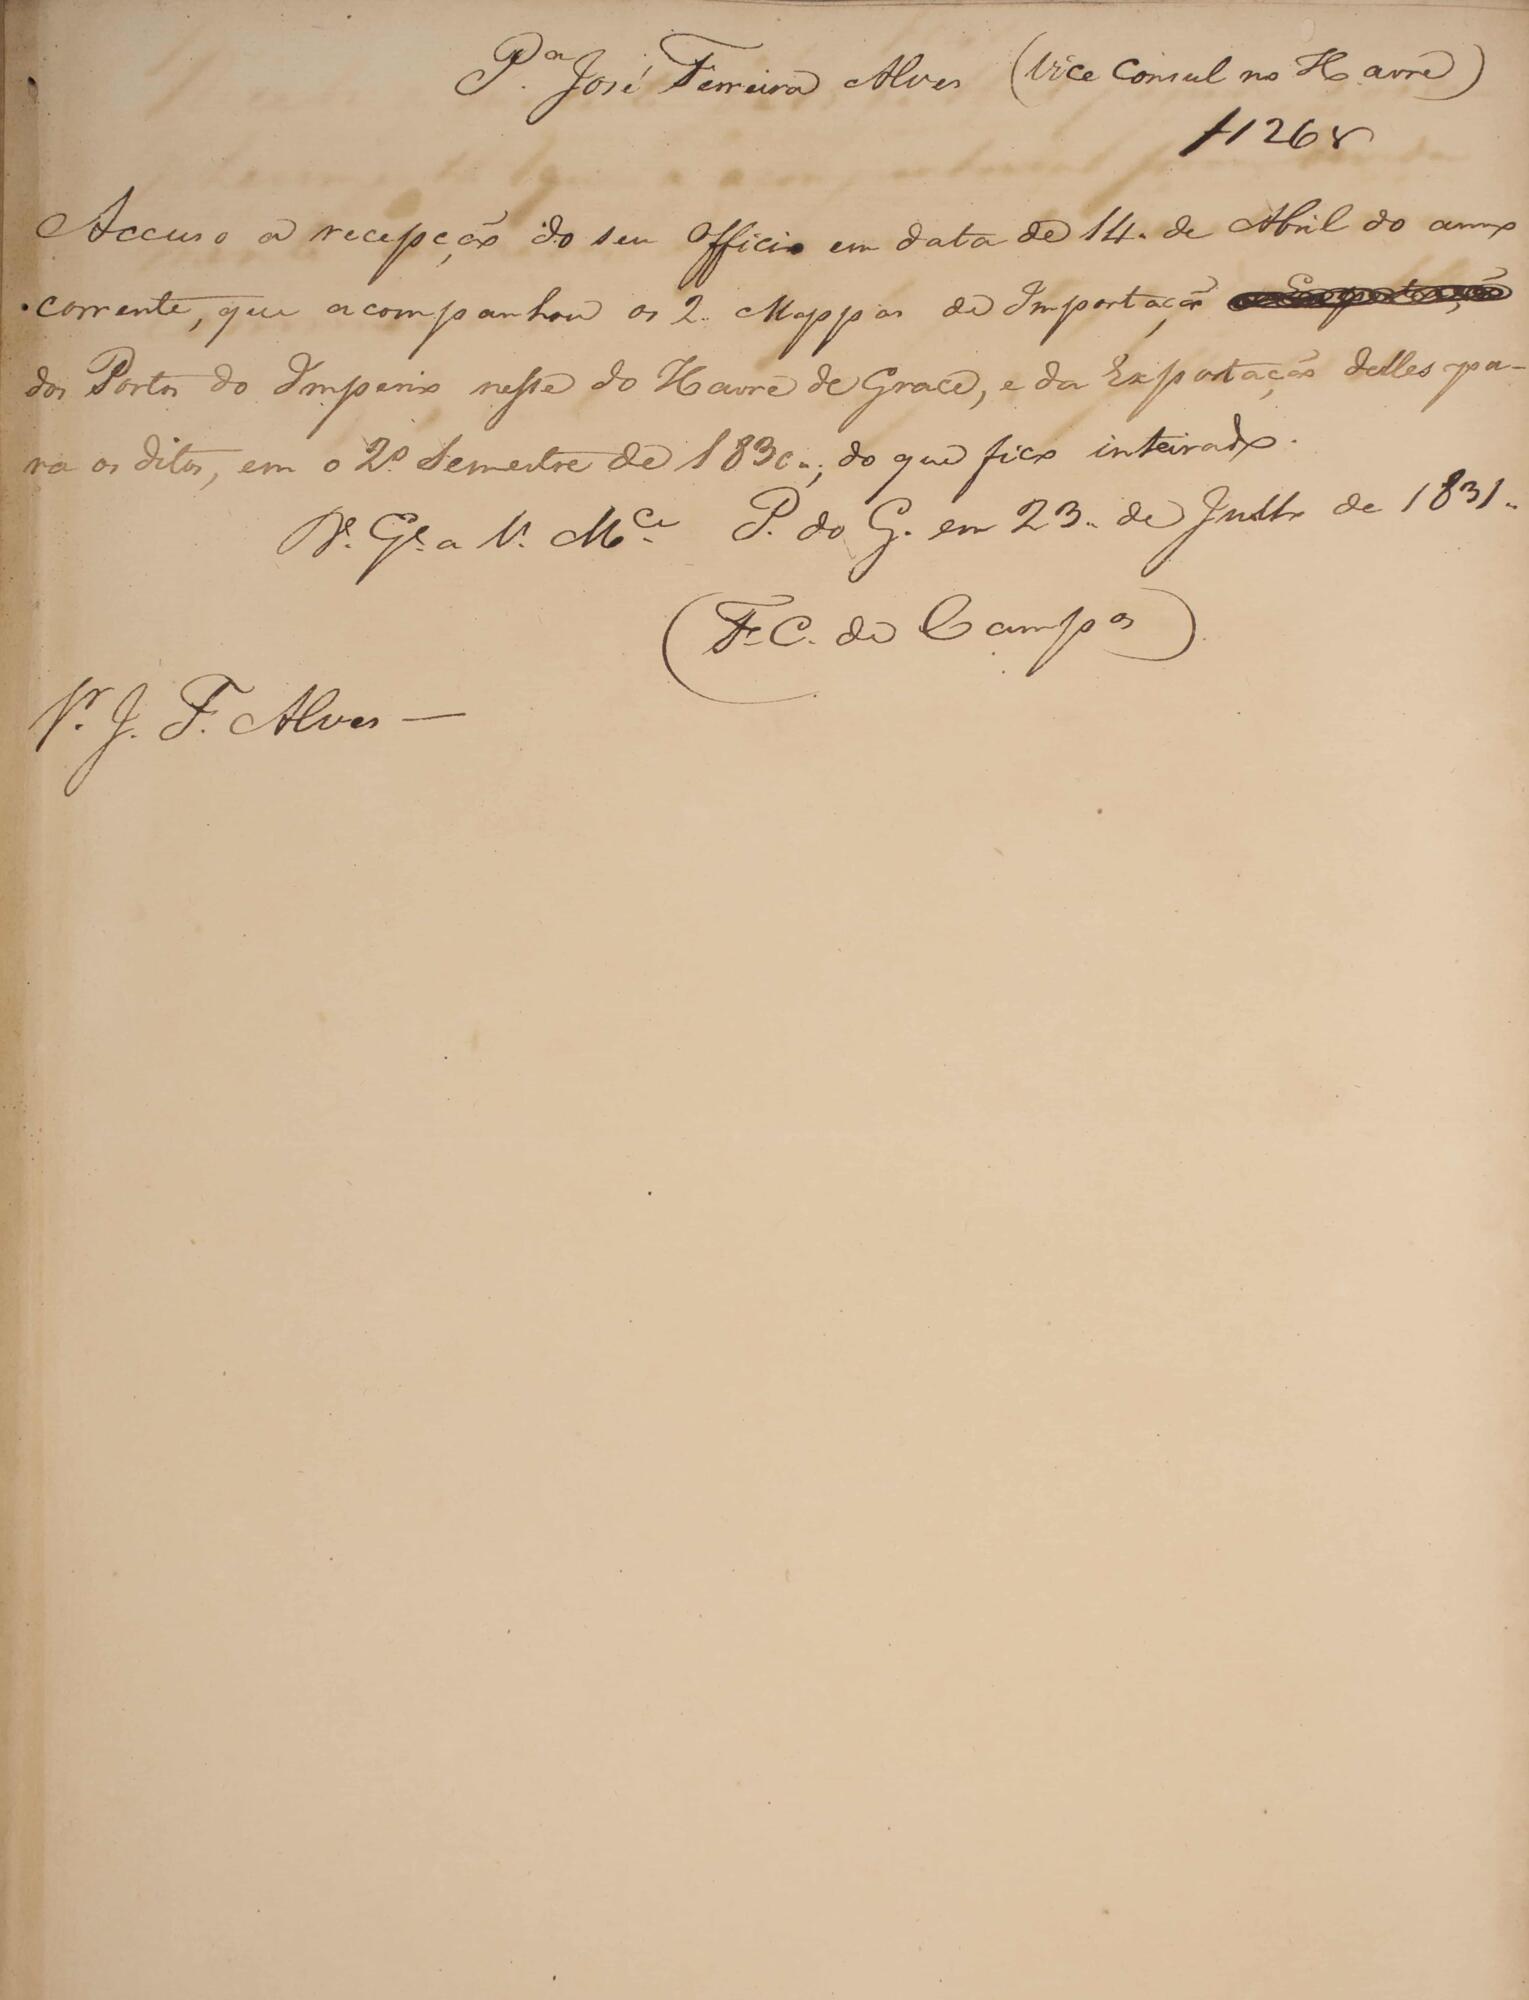 P.ª José Ferreira Alves (Vice Consul no Havre)
1268
Accuso a recepção do seu Officio em data de 14. de Abril do anno
corrente, que acompanhou os 2. Mappas de Importação e Exportação
dos Portos do Imperio nesse do Havre de Grace, e da Exportação delles pa-
ra os ditos, em o 2º Semestre de 1830.; do que fico inteirado.
D.s G.e a V. M.ce P. do G. em 23. de Julho de 1831.
(F. C. de Campos)
Sr. J. F. Alves —